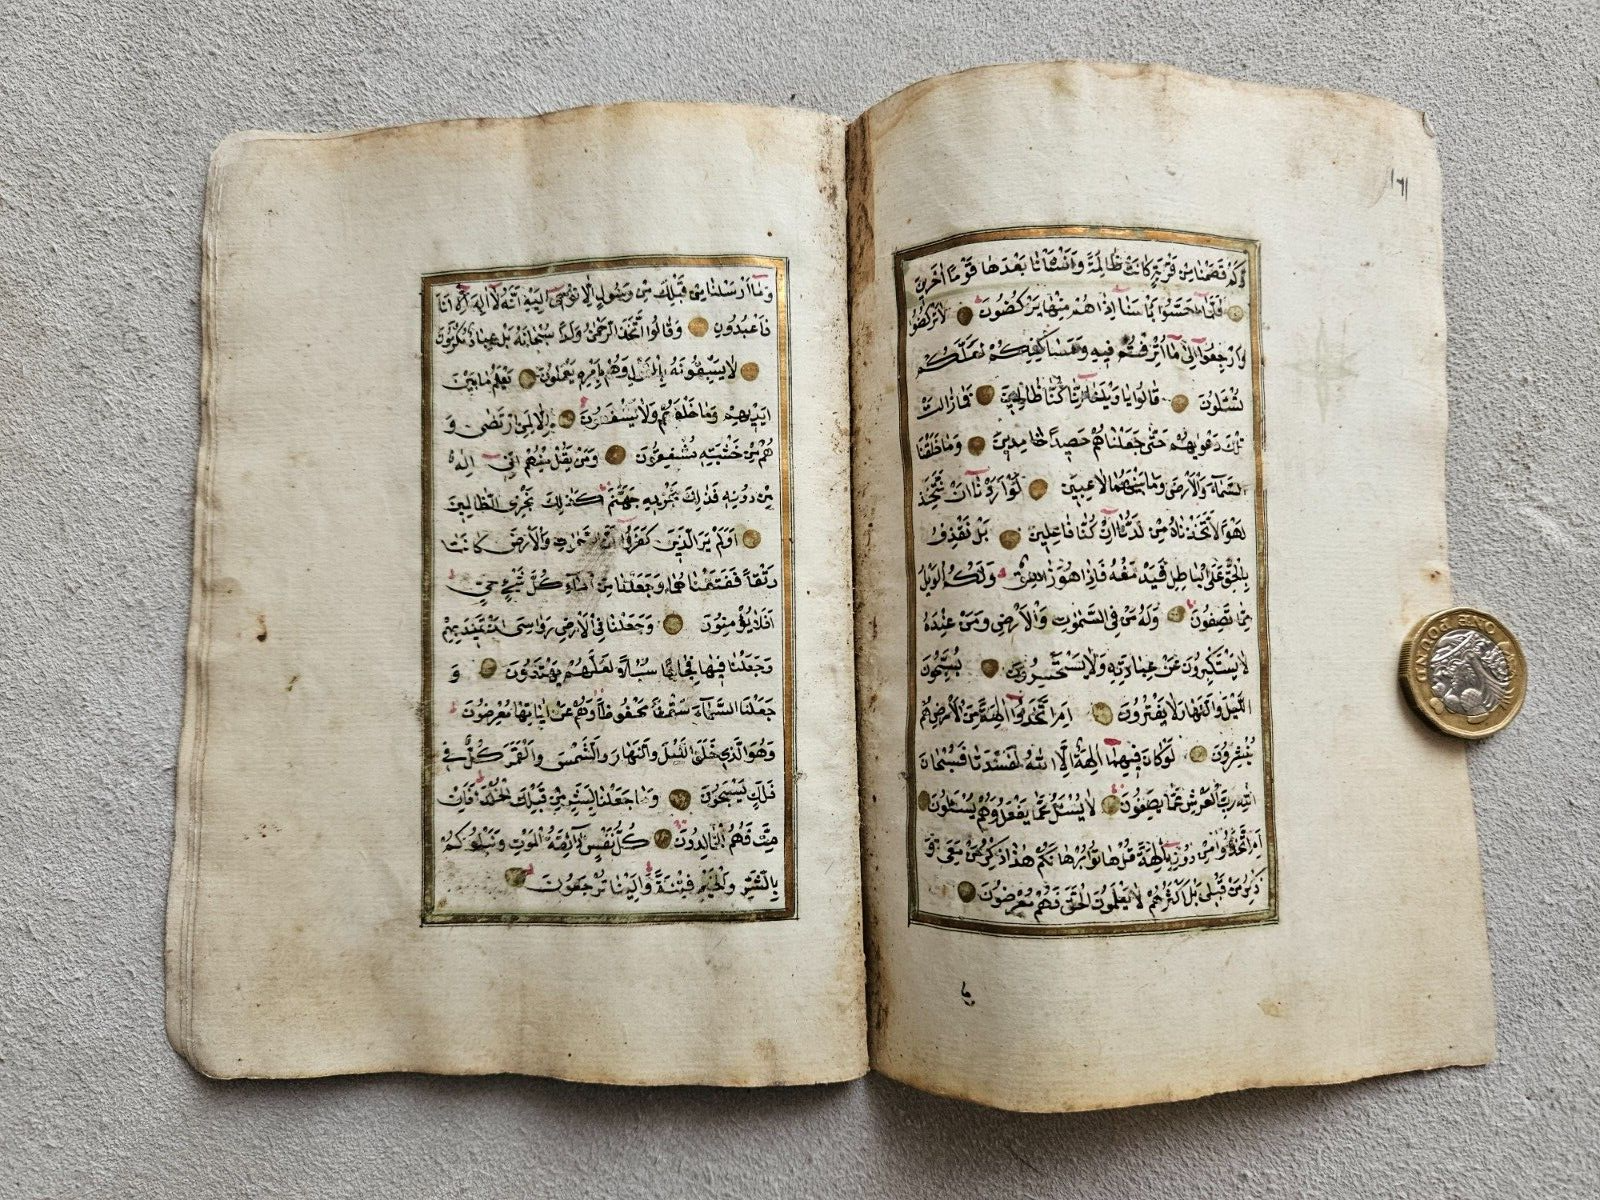 ١٦١
وَكَمْ قَصَمْنَا مِنْ قَرْيَةٍ كَانَتْ ظَالِمَةً وَاَنْشَاْنَا بَعْدَهَا قَوْمًا اٰخَرِينَ
فَلَمَّا اَحَسُّوا بَاْسَنَا اِذَا هُمْ مِنْهَا يَرْكُضُونَ لَا تَرْكُضُوا
وَارْجِعُوا اِلٰى مَا اُتْرِفْتُمْ فِيهِ وَمَسَاكِنِكُمْ لَعَلَّكُمْ
تُسْئَلُونَ قَالُوا يَا وَيْلَنَا اِنَّا كُنَّا ظَالِمِينَ فَمَا زَالَتْ
تِلْكَ دَعْوٰيهُمْ حَتّٰى جَعَلْنَاهُمْ حَصِيدًا خَامِدِينَ وَمَا خَلَقْنَا
السَّمَآءَ وَالْاَرْضَ وَمَا بَيْنَهُمَا لَاعِبِينَ لَوْ اَرَدْنَا اَنْ نَتَّخِذَ
لَهْوًا لَاتَّخَذْنَاهُ مِنْ لَدُنَّا اِنْ كُنَّا فَاعِلِينَ بَلْ نَقْذِفُ
بِالْحَقِّ عَلَى الْبَاطِلِ فَيَدْمَغُهُ فَاِذَا هُوَ زَاهِقٌ وَلَكُمُ الْوَيْلُ
مِمَّا تَصِفُونَ وَلَهُ مَنْ فِى السَّمٰوَاتِ وَالْاَرْضِ وَمَنْ عِنْدَهُ
لَا يَسْتَكْبِرُونَ عَنْ عِبَادَتِهِ وَلَا يَسْتَحْسِرُونَ يُسَبِّحُونَ
الَّيْلَ وَالنَّهَارَ لَا يَفْتُرُونَ اَمِ اتَّخَذُوا اٰلِهَةً مِنَ الْاَرْضِ هُمْ
يُنْشِرُونَ لَوْ كَانَ فِيهِمَا اٰلِهَةٌ اِلَّا اللّٰهُ لَفَسَدَتَا فَسُبْحَانَ
اللّٰهِ رَبِّ الْعَرْشِ عَمَّا يَصِفُونَ لَا يُسْئَلُ عَمَّا يَفْعَلُ وَهُمْ يُسْئَلُونَ
اَمِ اتَّخَذُوا مِنْ دُونِهِ اٰلِهَةً قُلْ هَاتُوا بُرْهَانَكُمْ هٰذَا ذِكْرُ مَنْ مَعِىَ وَ
ذِكْرُ مَنْ قَبْلِى بَلْ اَكْثَرُهُمْ لَا يَعْلَمُونَ الْحَقَّ فَهُمْ مُعْرِضُونَ
وَمَا اَرْسَلْنَا مِنْ قَبْلِكَ مِنْ رَسُولٍ اِلَّا نُوحِى اِلَيْهِ اَنَّهُ لَا اِلٰهَ اِلَّا اَنَا
فَاعْبُدُونِ وَقَالُوا اتَّخَذَ الرَّحْمٰنُ وَلَدًا سُبْحَانَهُ بَلْ عِبَادٌ مُكْرَمُونَ
لَا يَسْبِقُونَهُ بِالْقَوْلِ وَهُمْ بِاَمْرِهِ يَعْمَلُونَ يَعْلَمُ مَا بَيْنَ
اَيْدِيهِمْ وَمَا خَلْفَهُمْ وَلَا يَشْفَعُونَ اِلَّا لِمَنِ ارْتَضٰى وَ
هُمْ مِنْ خَشْيَتِهِ مُشْفِقُونَ وَمَنْ يَقُلْ مِنْهُمْ اِنِّى اِلٰهٌ
مِنْ دُونِهِ فَذٰلِكَ نَجْزِيهِ جَهَنَّمَ كَذٰلِكَ نَجْزِى الظَّالِمِينَ
اَوَلَمْ يَرَ الَّذِينَ كَفَرُوا اَنَّ السَّمٰوَاتِ وَالْاَرْضَ كَانَتَا
رَتْقًا فَفَتَقْنَاهُمَا وَجَعَلْنَا مِنَ الْمَآءِ كُلَّ شَىْءٍ حَىٍّ
اَفَلَا يُؤْمِنُونَ وَجَعَلْنَا فِى الْاَرْضِ رَوَاسِىَ اَنْ تَمِيدَ بِهِمْ
وَجَعَلْنَا فِيهَا فِجَاجًا سُبُلًا لَعَلَّهُمْ يَهْتَدُونَ وَ
جَعَلْنَا السَّمَآءَ سَقْفًا مَحْفُوظًا وَهُمْ عَنْ اٰيَاتِهَا مُعْرِضُونَ
وَهُوَ الَّذِى خَلَقَ الَّيْلَ وَالنَّهَارَ وَالشَّمْسَ وَالْقَمَرَ كُلٌّ فِى
فَلَكٍ يَسْبَحُونَ وَمَا جَعَلْنَا لِبَشَرٍ مِنْ قَبْلِكَ الْخُلْدَ اَفَاِنْ
مِتَّ فَهُمُ الْخَالِدُونَ كُلُّ نَفْسٍ ذَآئِقَةُ الْمَوْتِ وَنَبْلُوكُمْ
بِالشَّرِّ وَالْخَيْرِ فِتْنَةً وَاِلَيْنَا تُرْجَعُونَ
ONE POUND